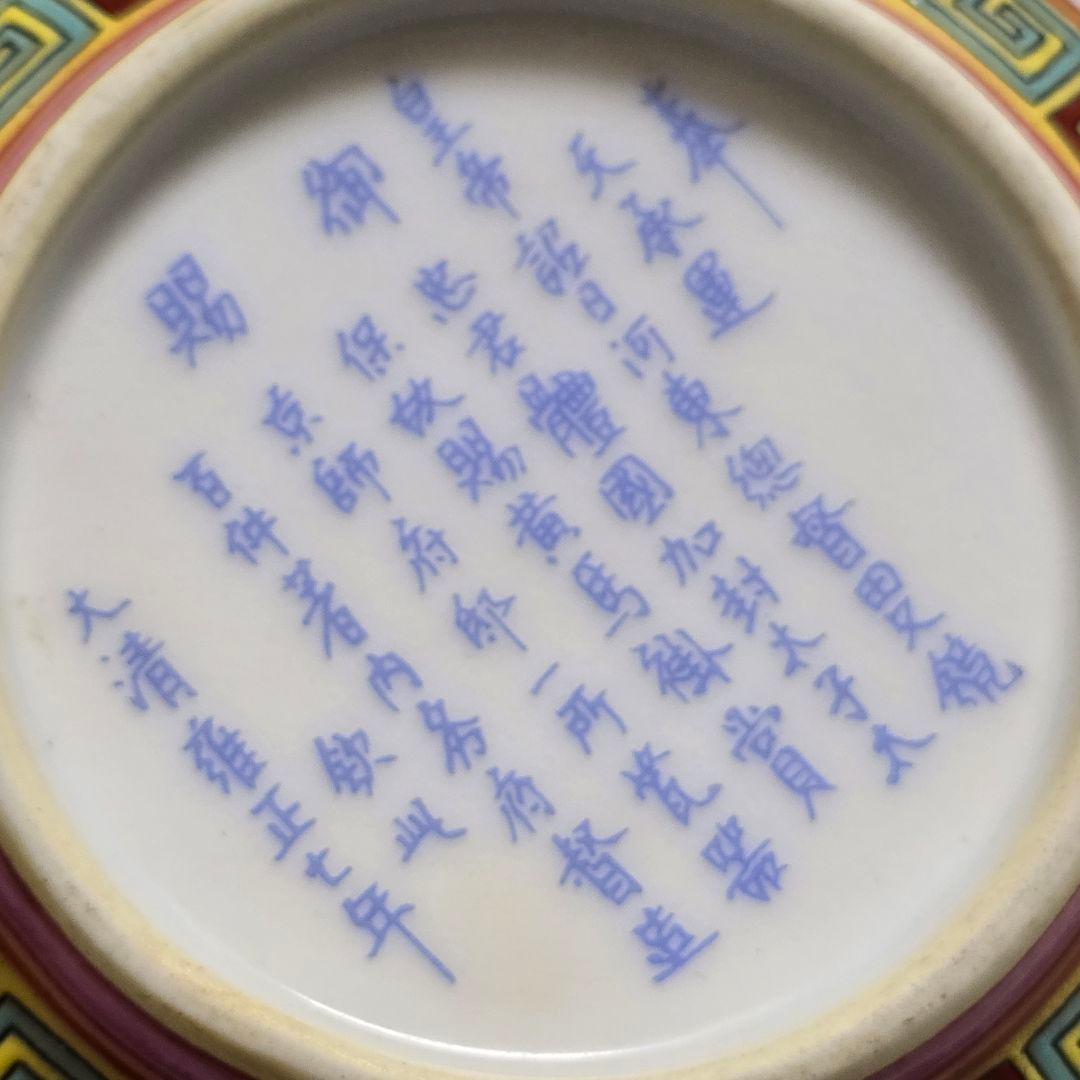 御賜
奉
天承運
皇帝詔曰河東總督田文鏡
忠君體國加封太子太
保故賜黃馬褂賞
京師府邸一所瓷器
百件著內務府督造
欽此
大清雍正七年